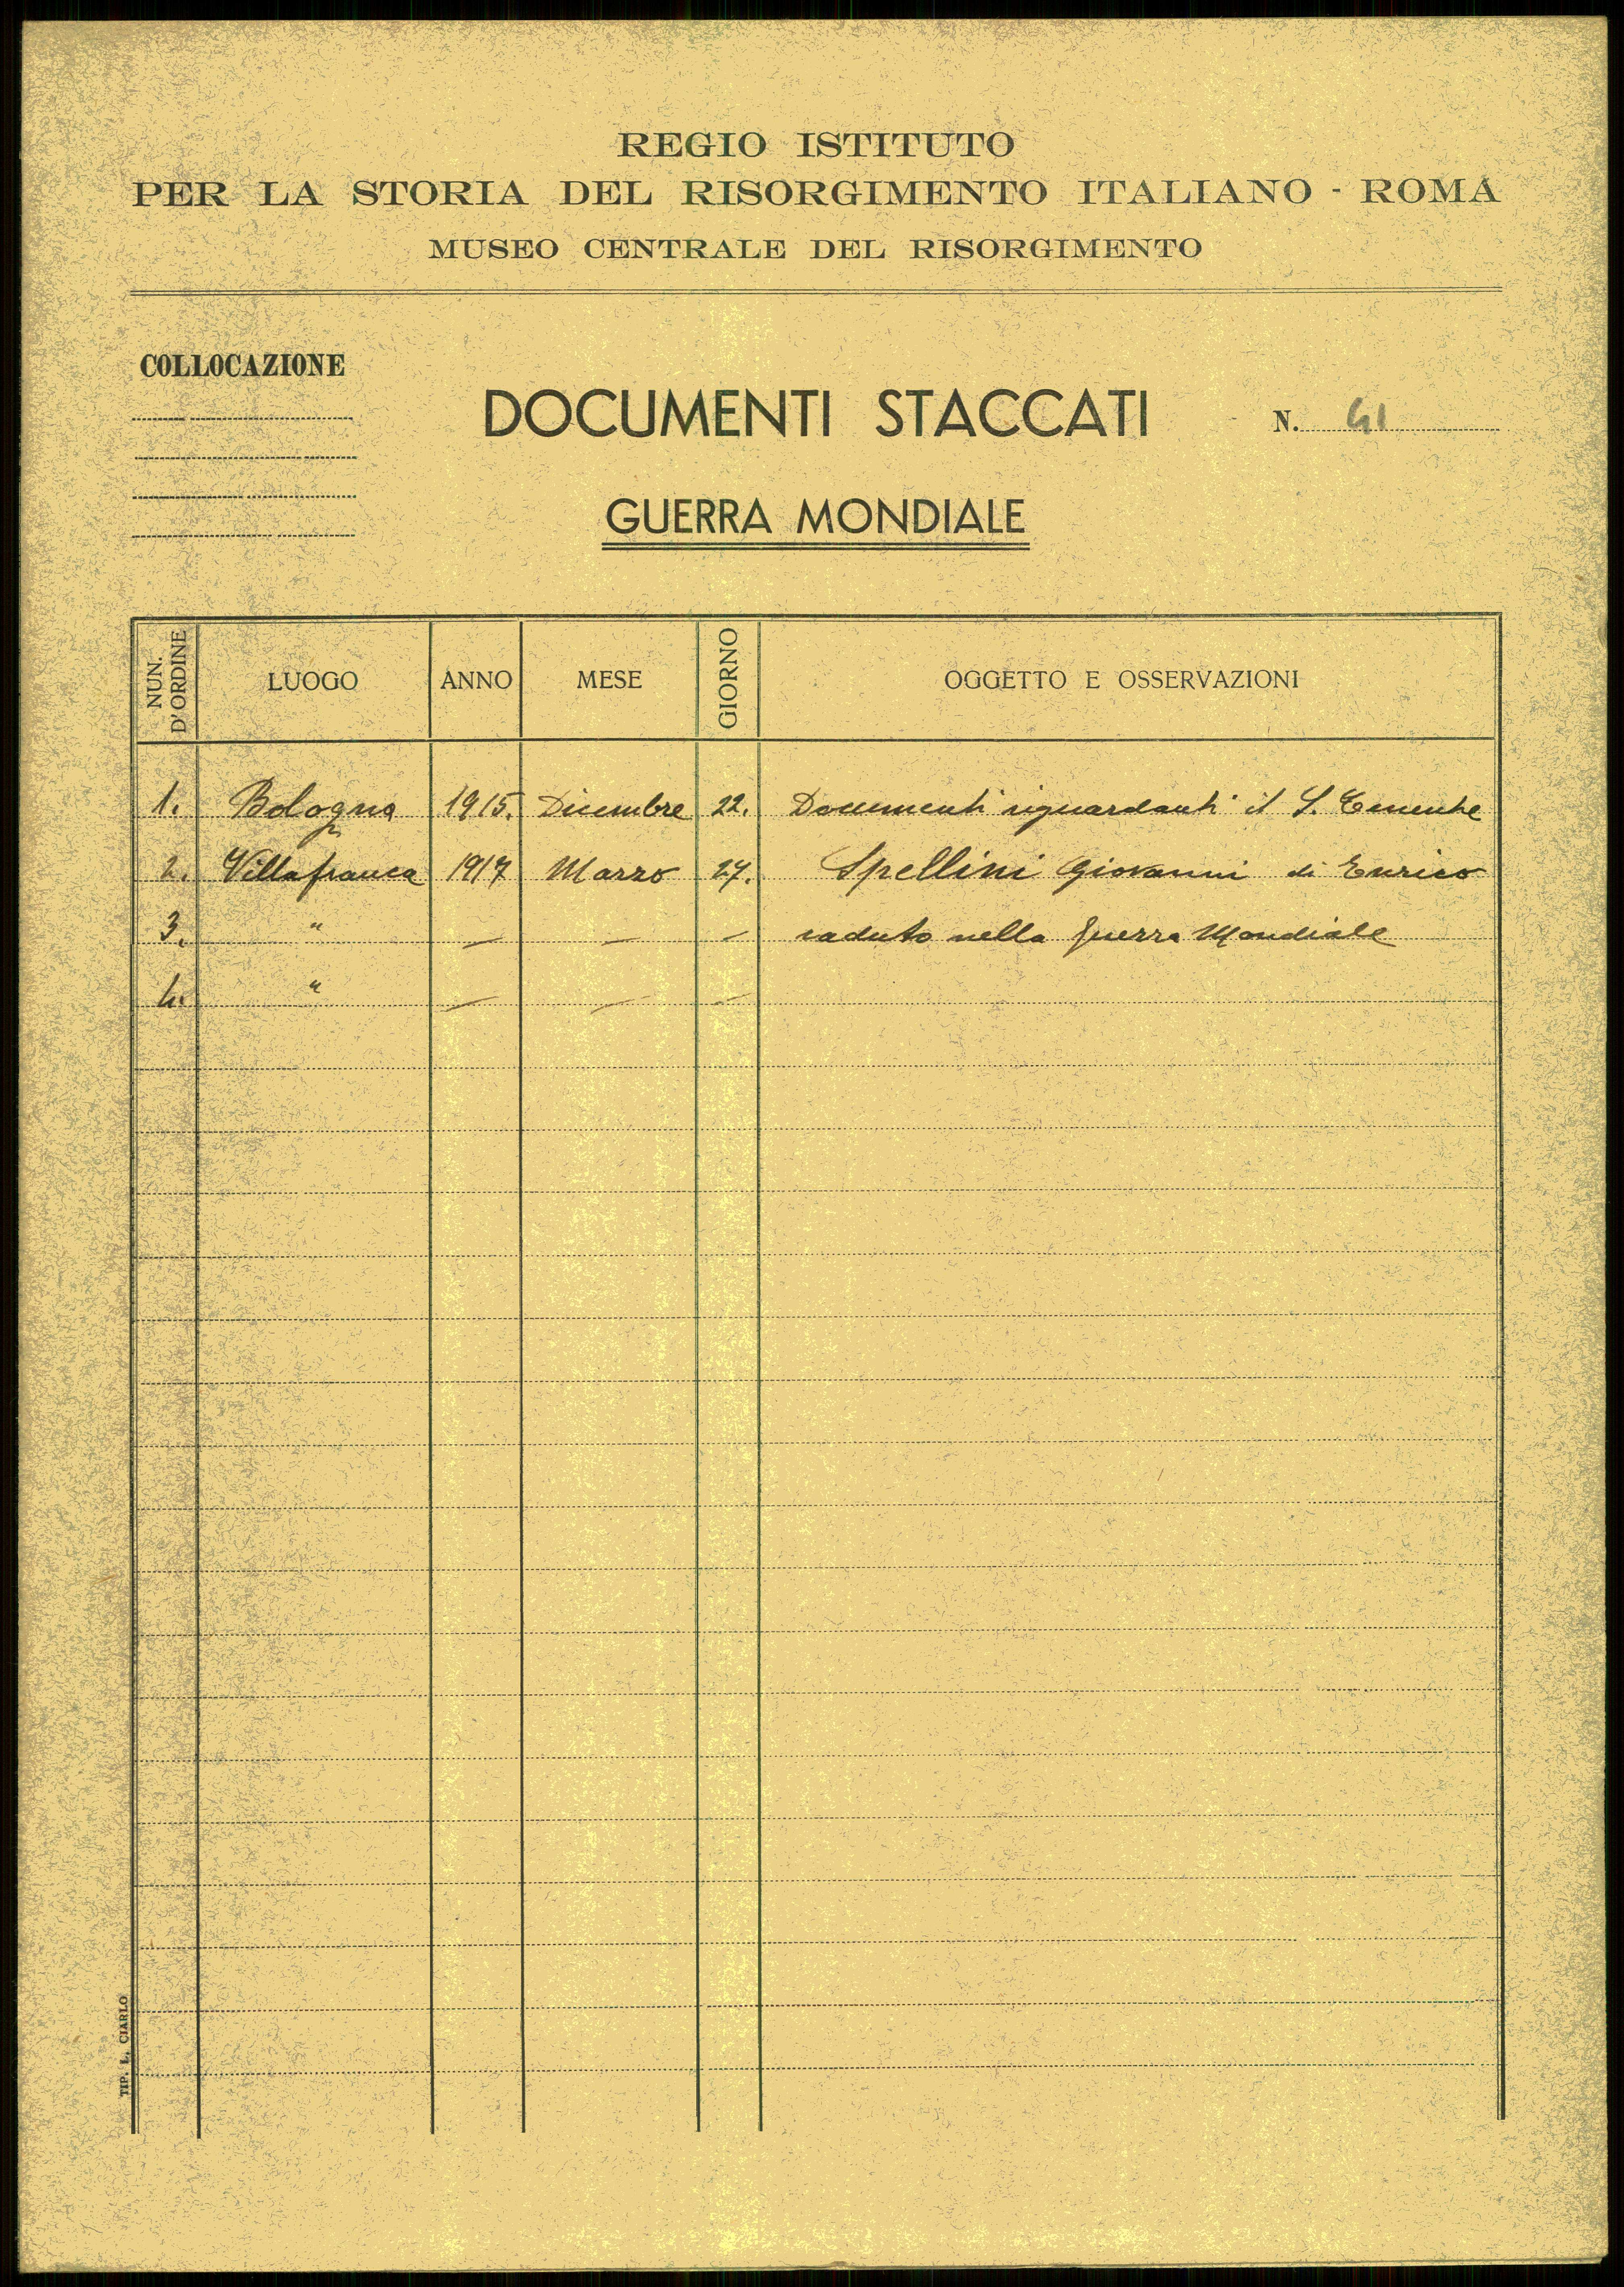 REGIO ISTITUTO
PER LA STORIA DEL RISORGIMENTO ITALIANO - ROMA
MUSEO CENTRALE DEL RISORGIMENTO
COLLOCAZIONE
DOCUMENTI STACCATI N. 41
GUERRA MONDIALE
NUN. D'ORDINE LUOGO ANNO MESE GIORNO OGGETTO E OSSERVAZIONI
1. Bologna 1915. Dicembre 22. Documenti riguardanti il S. Tenente
2. Villafranca 1917 Marzo 27. Spellini Giovanni di Enrico
3. " — — — caduto nella guerra Mondiale
4. " — — —
TIP. L. CIARLO